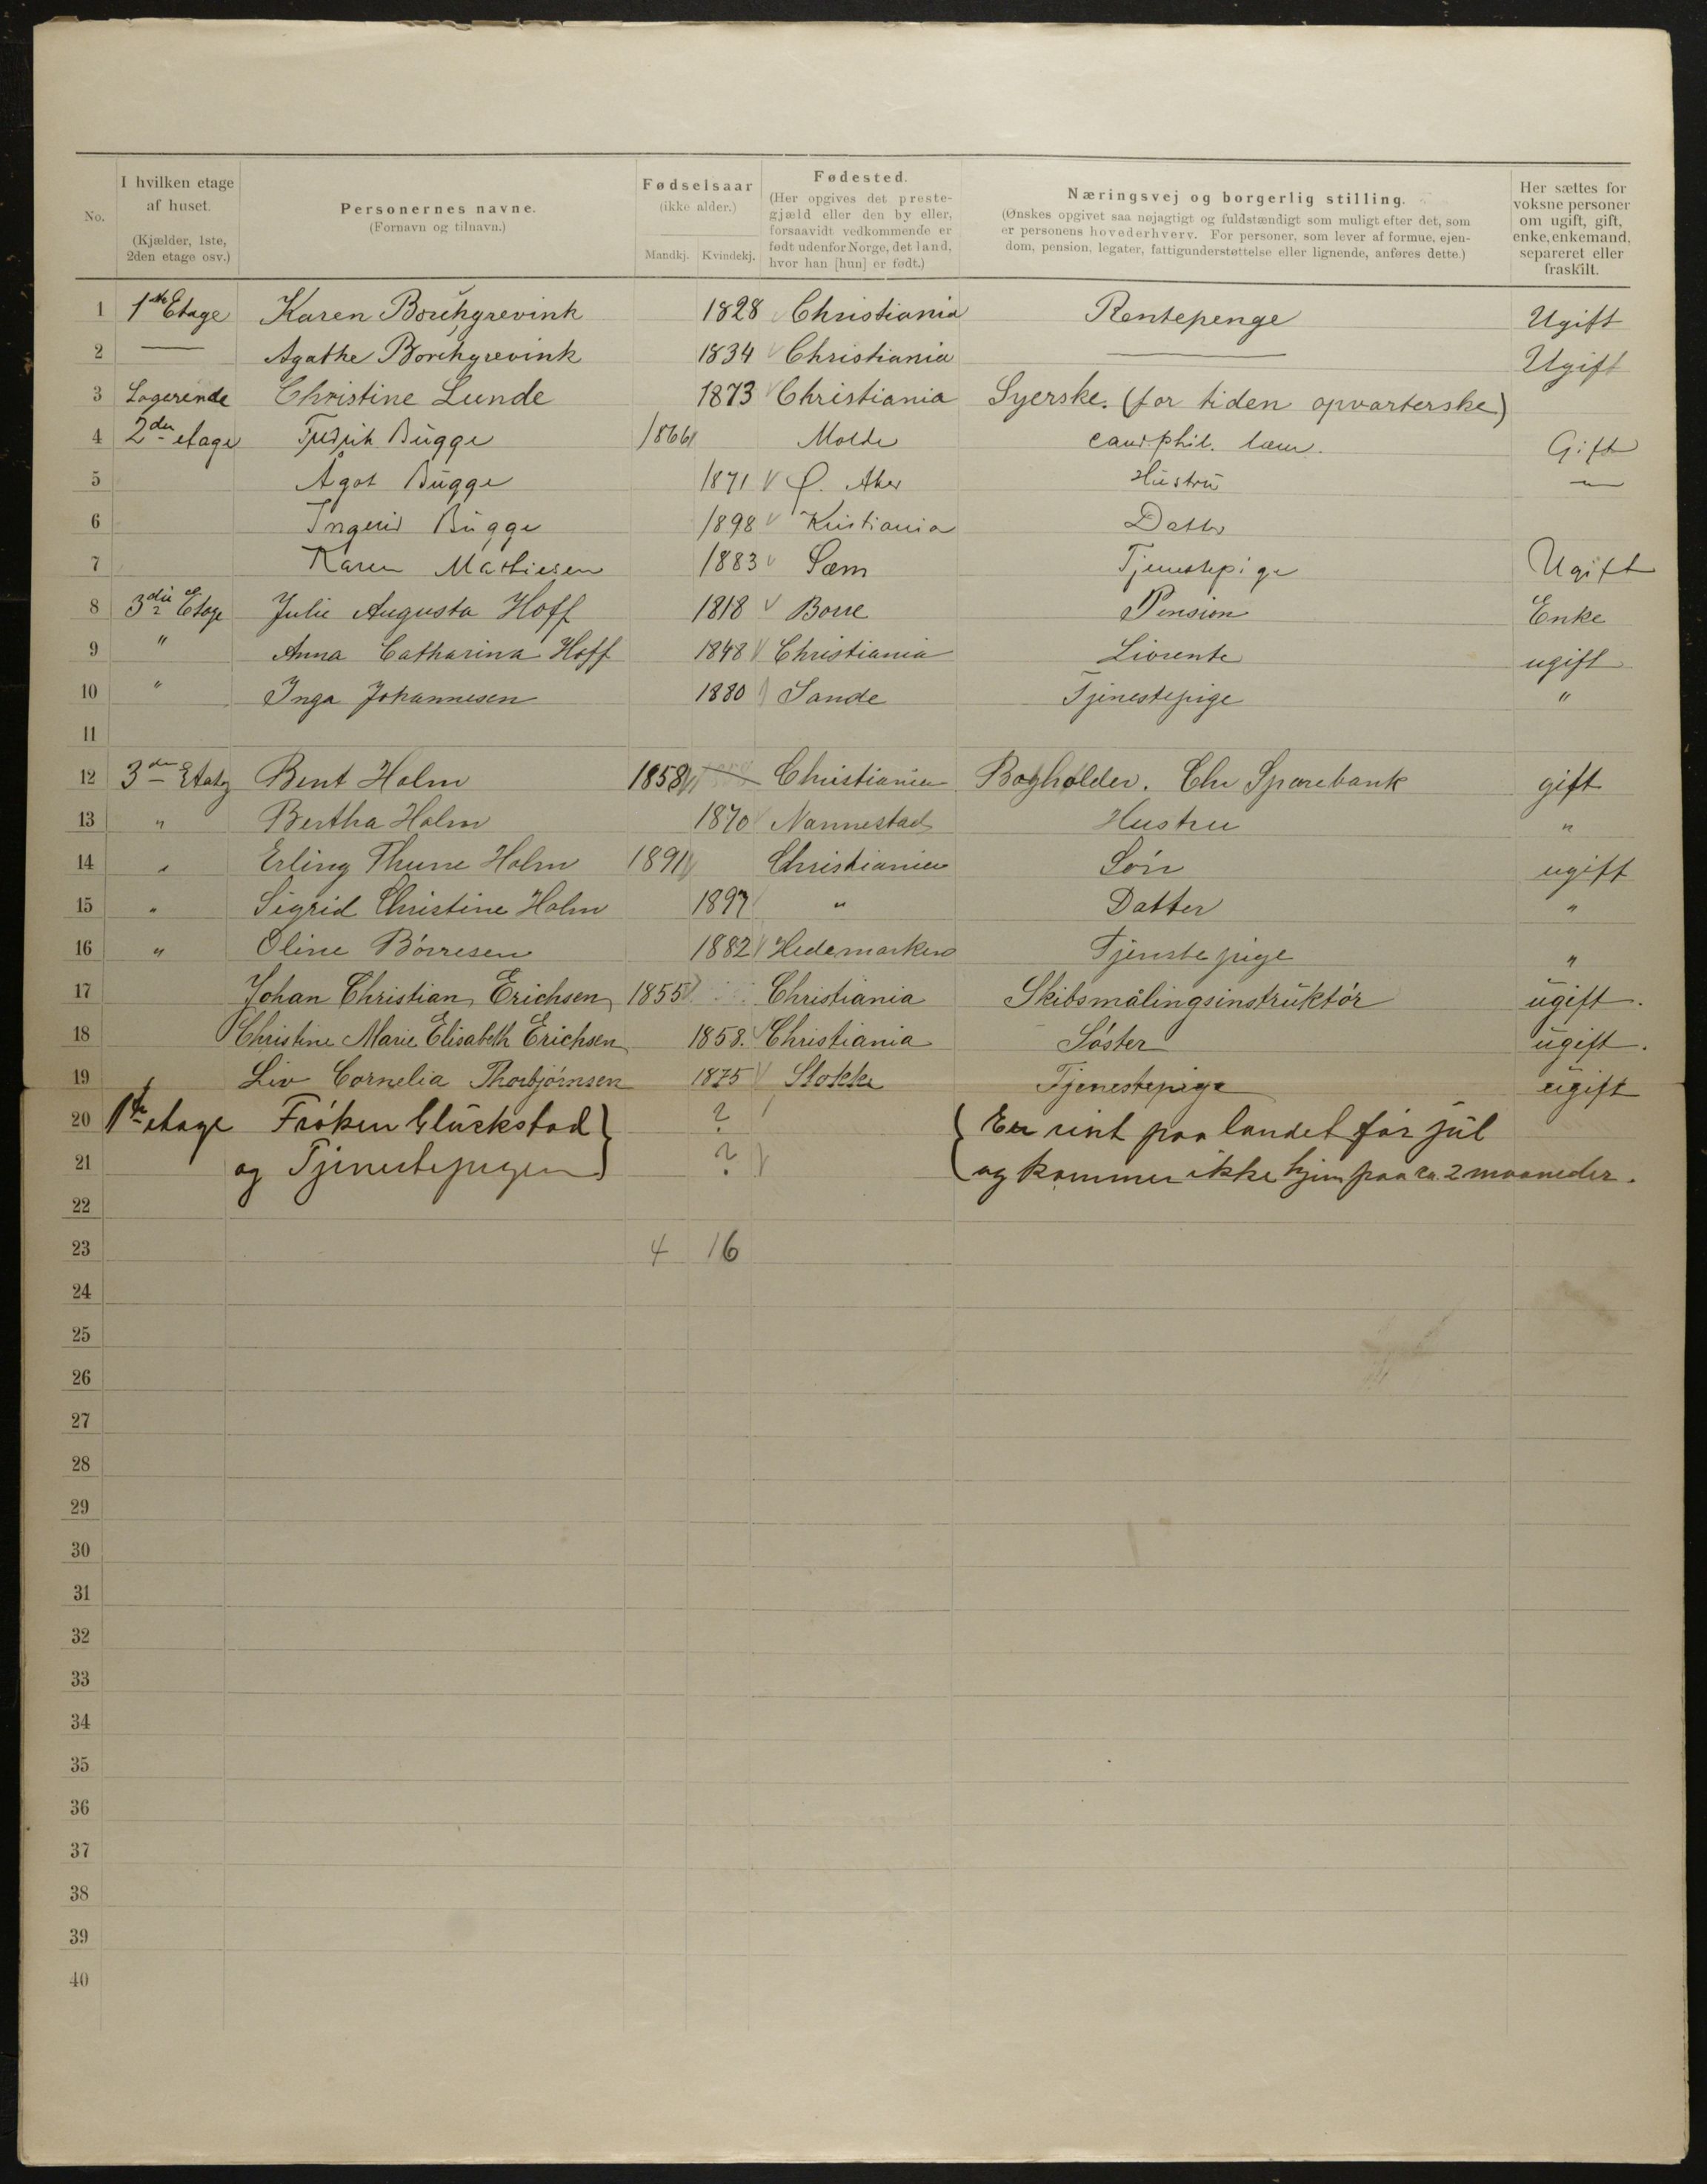 No.
I hvilken etage af huset. (Kjælder, 1ste, 2den etage osv.)
Personernes navne. (Fornavn og tilnavn.)
Fødselsaar (ikke alder.) Mandkj. Kvindekj.
Fødested. (Her opgives det prestegjæld eller den by eller, forsaavidt vedkommende er født udenfor Norge, det land, hvor han [hun] er født.)
Næringsvej og borgerlig stilling. (Ønskes opgivet saa nøjagtigt og fuldstændigt som muligt efter det, som er personens hovederhverv. For personer, som lever af formue, ejendom, pension, legater, fattigunderstøttelse eller lignende, anføres dette.)
Her sættes for voksne personer om ugift, gift, enke, enkemand, separeret eller fraskilt.
1 1ste Etage Karen Borchgrevink 1828 Christiania Rentepenge Ugift
2 — Agathe Borchgrevink 1834 Christiania — Ugift
3 Logerende Christine Lunde 1873 Christiania Syerske. (for tiden opvarterske)
4 2den etage Fredrik Bugge 1866 Molde cand. phil. Gift
5 Ågot Bugge 1871 Ø. Aker Hustru —
6 Ingerid Bugge 1898 Kristiania Datter
7 Karen Mathiesen 1883 Sæm Tjenestepige Ugift
8 3die Etage Julie Augusta Hoff 1818 Borre Pension Enke
9 " Anna Catharina Hoff 1848 Christiania Livrente ugift
10 " Inga Johannesen 1880 Sande Tjenestepige "
11
12 3die Etage Bent Holm 1858 Christiania Bogholder. Chr Sparebank gift
13 " Bertha Holm 1870 Nannestad Hustru "
14 " Erling Thune Holm 1891 Christiania Søn ugift
15 " Sigrid Christine Holm 1897 " Datter "
16 " Oline Børresen 1882 Hedemarken Tjenstepige "
17 Johan Christian Erichsen 1855 Christiania Skibsmålingsinstruktør ugift.
18 Christine Marie Elisabeth Erichsen 1858. Christiania Søster ugift.
19 Liv Cornelia Thorbjørnsen 1875 Stokke Tjenestepige ugift
20 1ste etage Frøken Glückstad } ? { Er reist paa landet før jul
21 og Tjenestepigen } ? { og kommer ikke hjem paa ca. 2 maaneder.
22
23 4 16
24
25
26
27
28
29
30
31
32
33
34
35
36
37
38
39
40